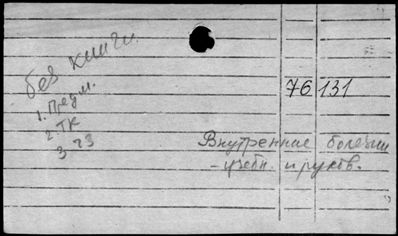 без книги.
1. Предм.
2 ТК
3 ГЗ
76 131
Внутренние болезни
- учебн. и руков.